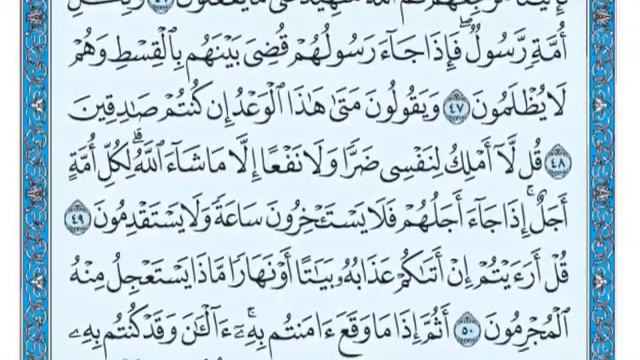 أُمَّةٍ رَّسُولٌ ۖ فَإِذَا جَاءَ رَسُولُهُمْ قُضِىَ بَيْنَهُم بِالْقِسْطِ وَهُمْ
لَا يُظْلَمُونَ ٤٧ وَيَقُولُونَ مَتَىٰ هَٰذَا الْوَعْدُ إِن كُنتُمْ صَادِقِينَ
٤٨ قُل لَّا أَمْلِكُ لِنَفْسِى ضَرًّا وَلَا نَفْعًا إِلَّا مَا شَاءَ اللَّهُ ۗ لِكُلِّ أُمَّةٍ
أَجَلٌ ۚ إِذَا جَاءَ أَجَلُهُمْ فَلَا يَسْتَـْٔخِرُونَ سَاعَةً وَلَا يَسْتَقْدِمُونَ ٤٩
قُلْ أَرَءَيْتُمْ إِنْ أَتَىٰكُمْ عَذَابُهُۥ بَيَٰتًا أَوْ نَهَارًا مَّاذَا يَسْتَعْجِلُ مِنْهُ
الْمُجْرِمُونَ ٥٠ أَثُمَّ إِذَا مَا وَقَعَ ءَامَنتُم بِهِۦٓ ۚ ءَآلْـَٰٔنَ وَقَدْ كُنتُم بِهِۦ